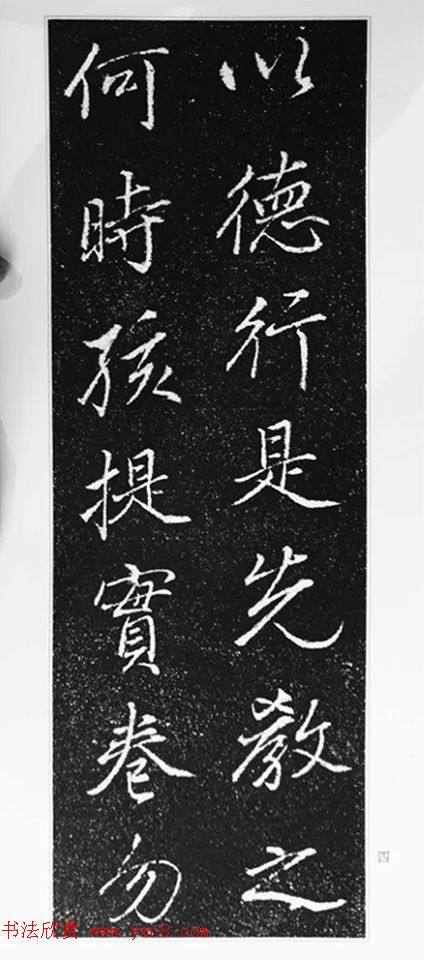 以德行是先教之
何時孩提實卷勿
书法欣赏 www.yac8.com